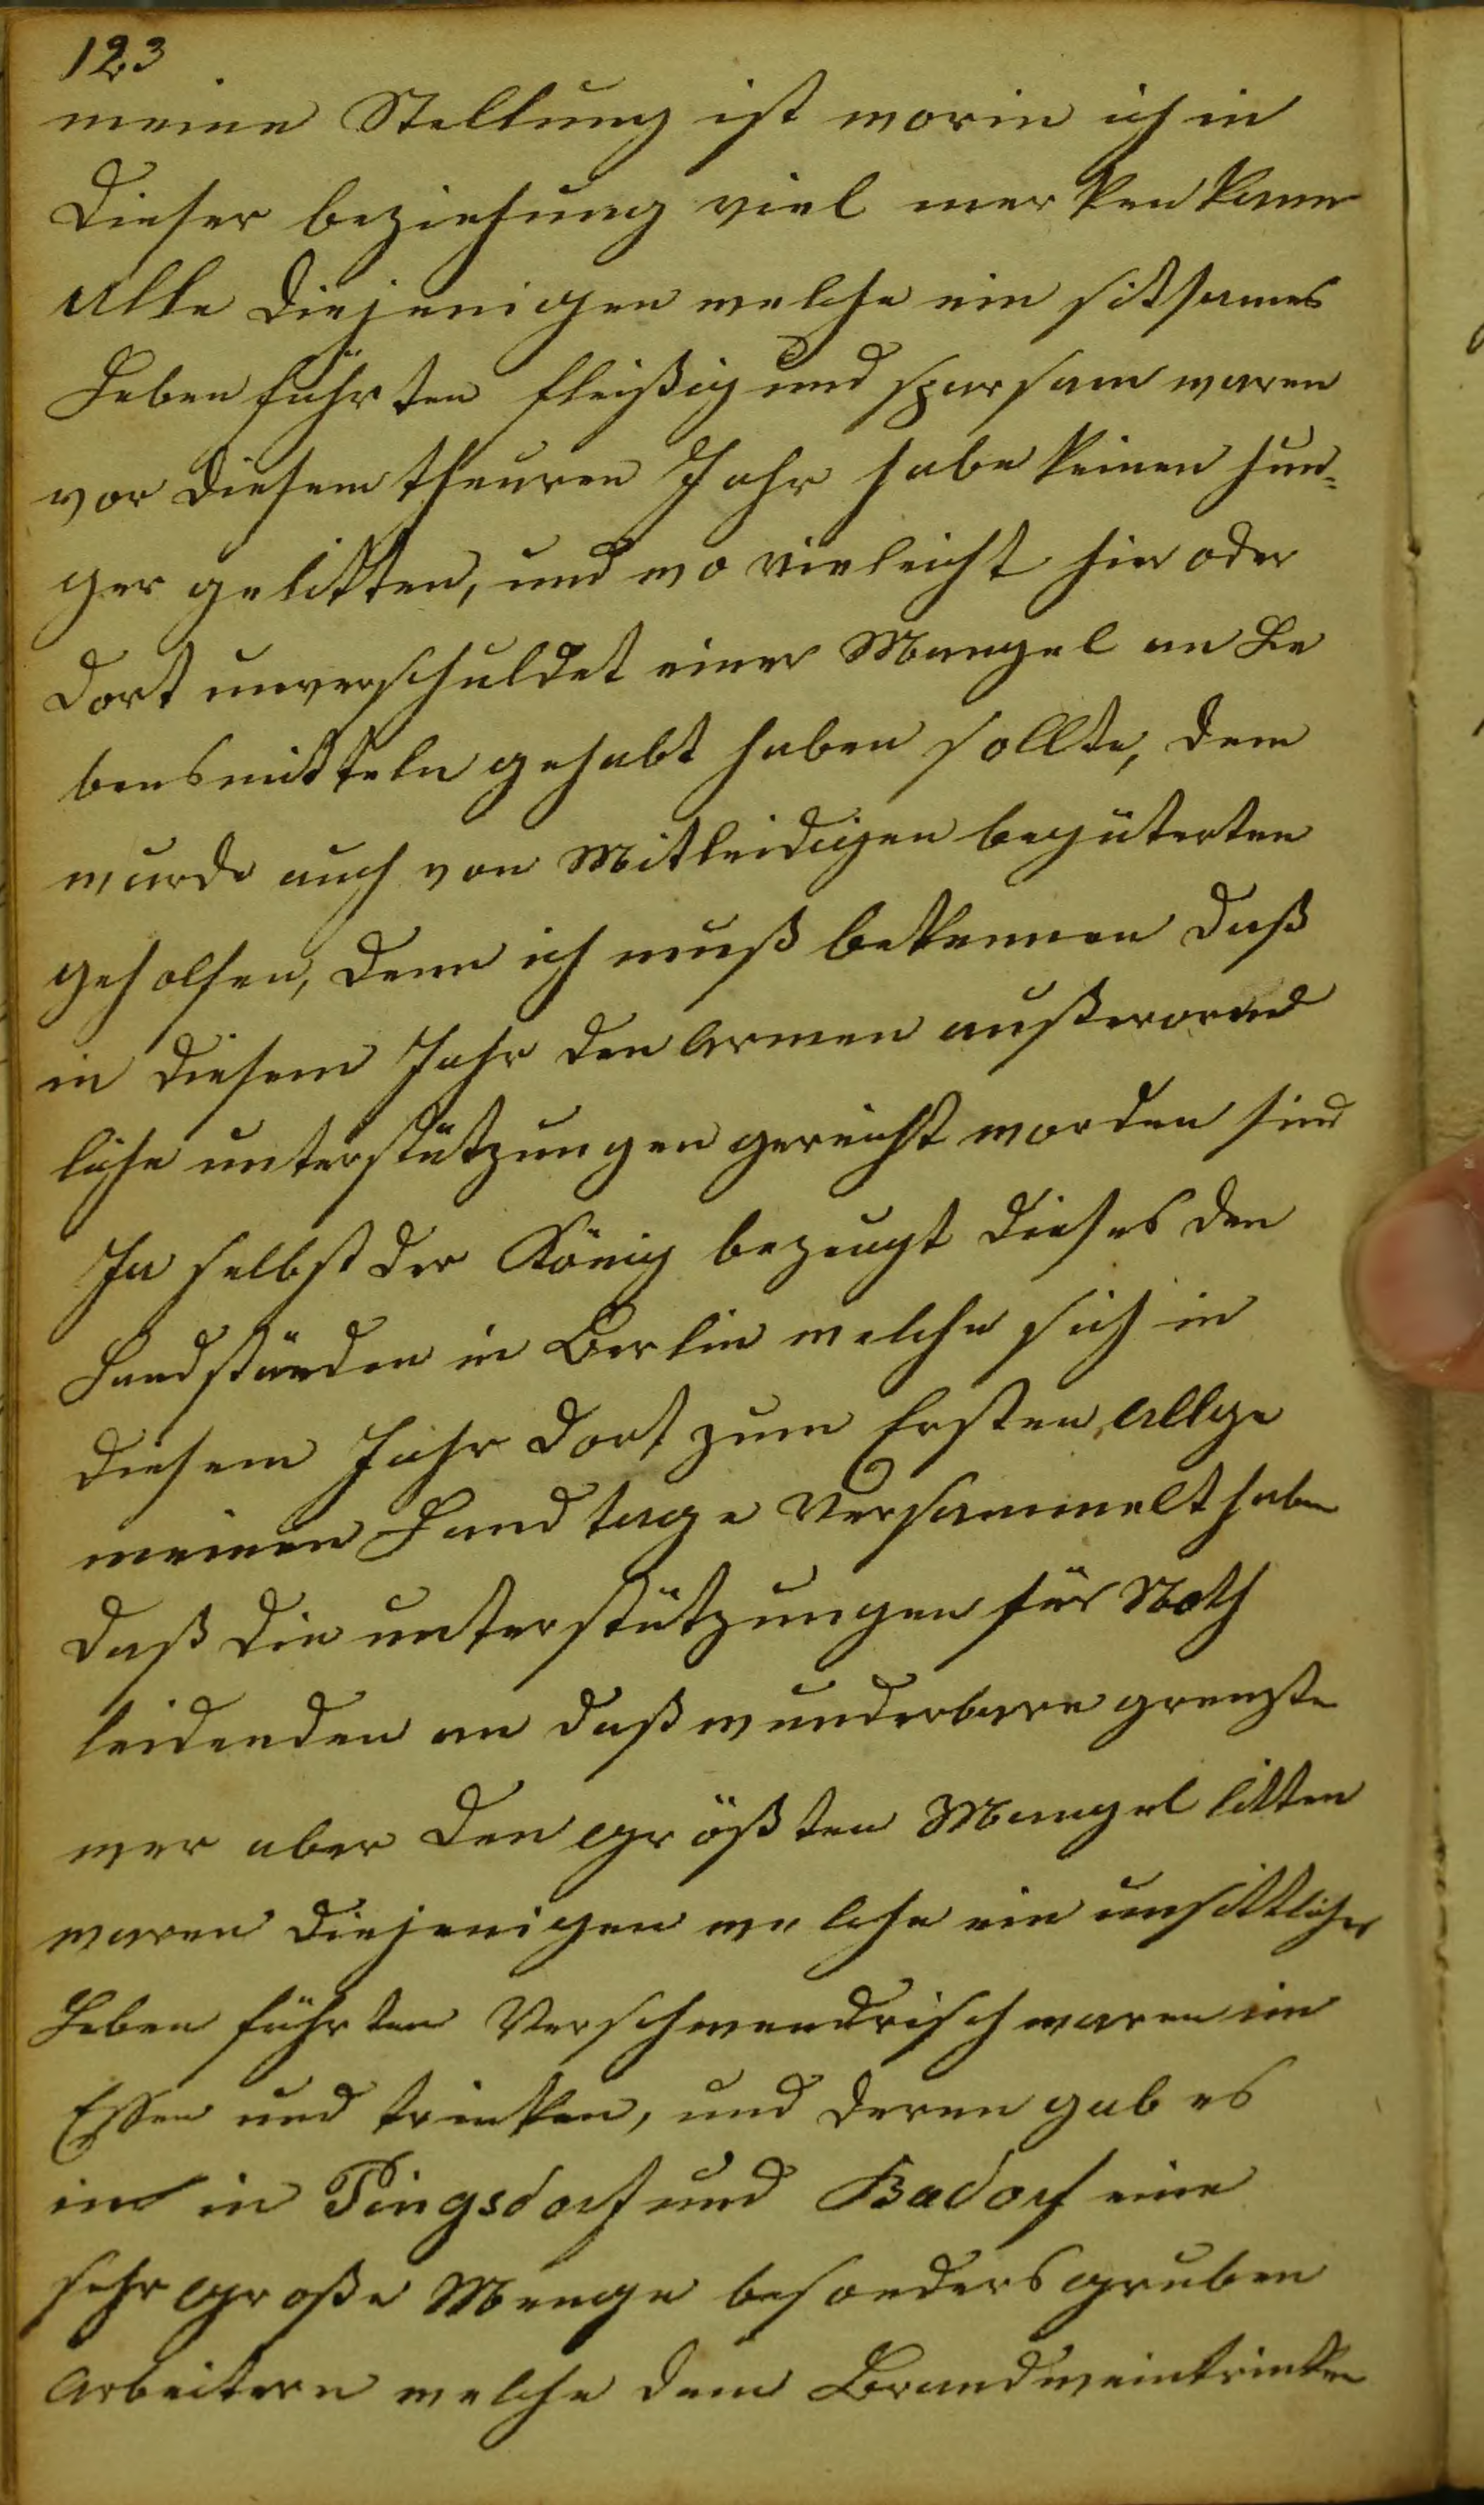 123
meine Stellung ist worin ich in
dieser beziehung viel merken kann
Alle diejenigen welche ein sitsames
Leben führten fleißig und sparsam waren
vor diesem theuren Jahr habe keinen hun=
ger gelitten, und wo vieleicht hir oder
dort unverschuldet einer Mangel an Le
bensmitteln gehabt haben sollte, dem
wurde auch von Mitleidigen begüterten
geholfen, denn ich muß bekennen daß
in diesem Jahr den Armen außerorend
liche unterstützungen gereicht worden sind
Ja selbst der König bezeugt dieses den
Landständen in Berlin welche sich in
diesem Jahr dort zum Ersten Allge
meinen Landtage Versammelt haben
daß die unterstützungen für Noth
leidenden an daß wunderbare grenzte
wer aber den größten Mangel litten
waren diejenigen welche ein unsittliches
Leben führten Verschwendrisch waren im
Essen und trinken, und deren gab es
in in Pingsdorf und Badorf eine
sehr große Menge besonders gruben
Arbeitern welche dem Brandweintrinken